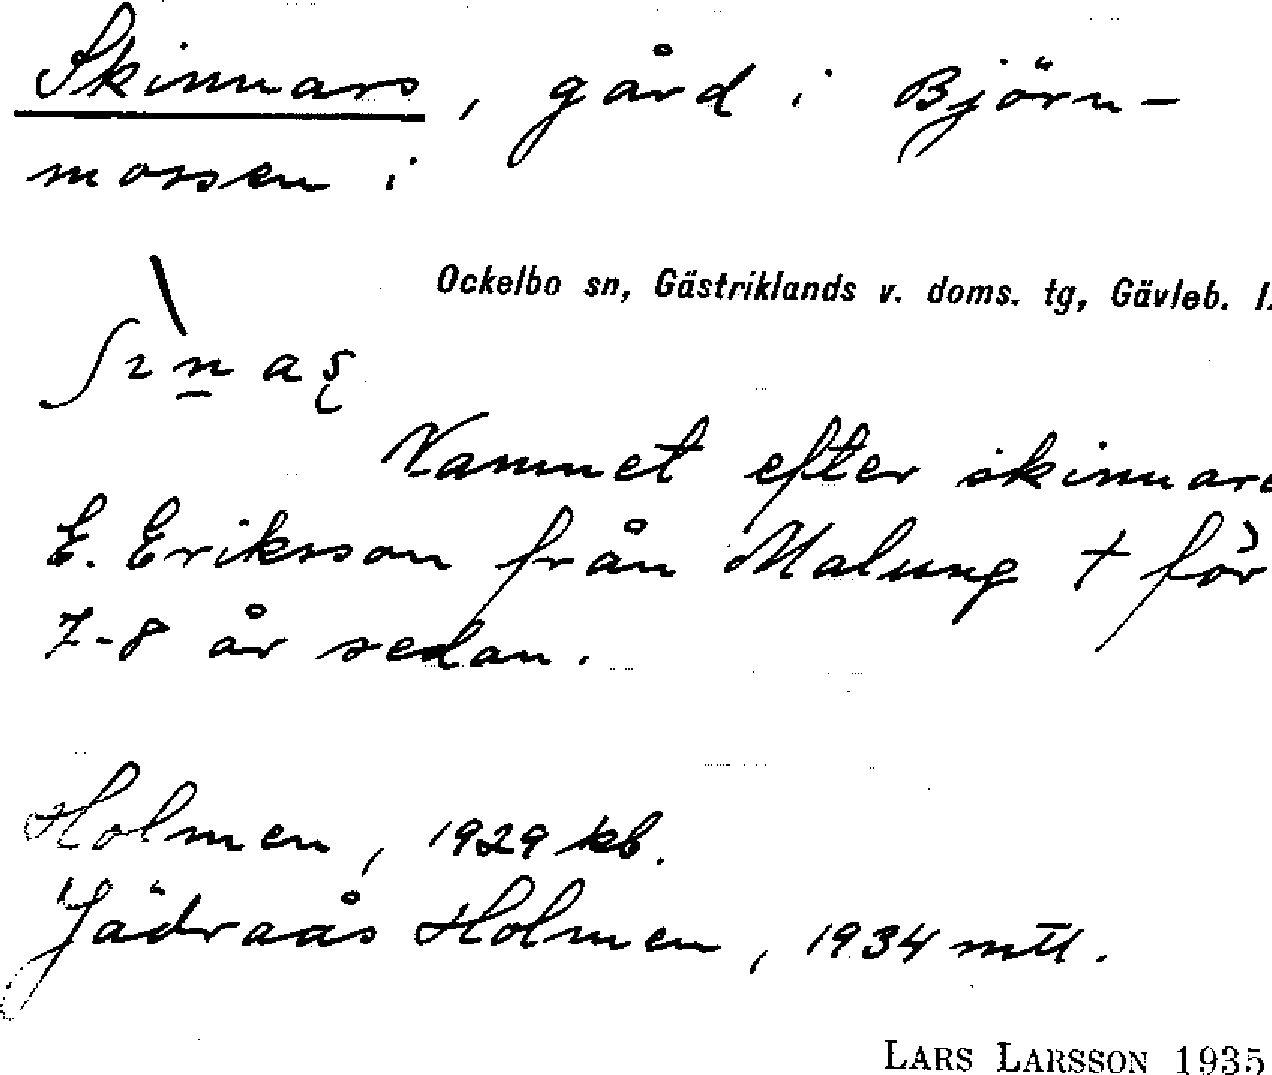 Skinnars, gård i Björn-
mossen i
Ockelbo sn, Gästriklands v. doms. tg, Gävleb. l.
Namnet efter skinnare
E. Eriksson från Malung † för
7-8 år sedan.
Holmen, 1929 kb.
Jädraås Holmen, 1934 mtl.
LARS LARSSON 1935